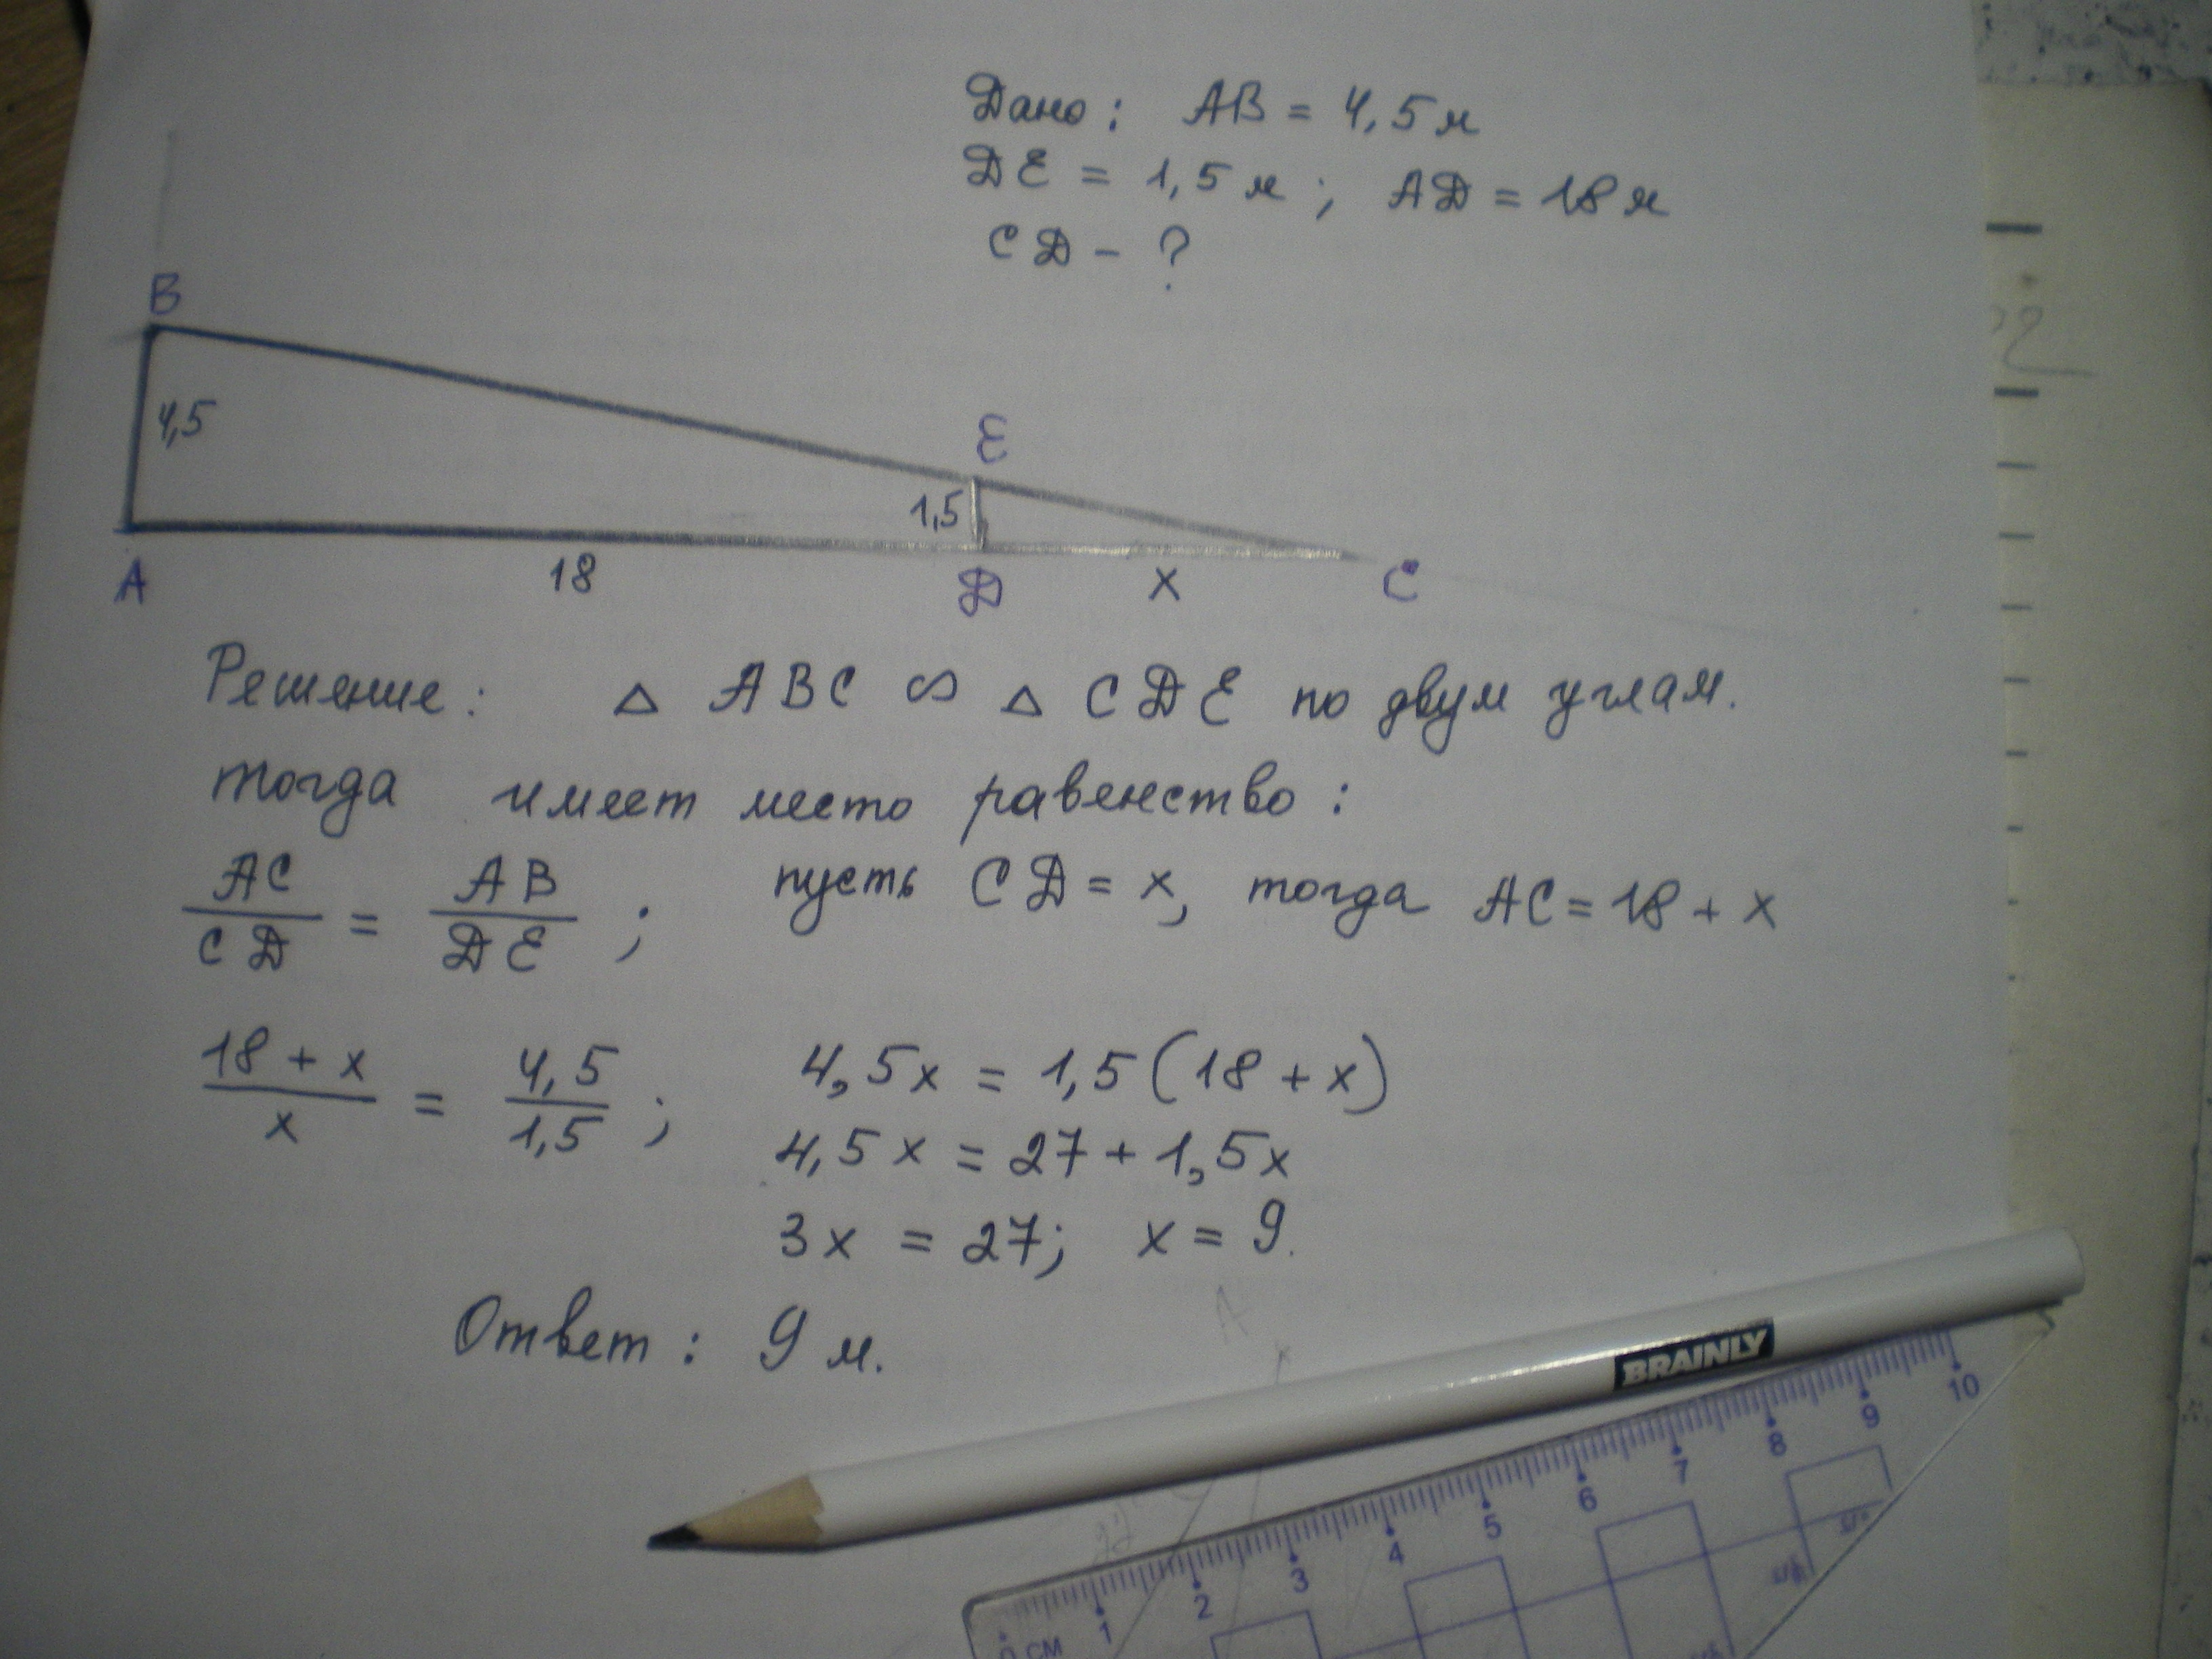 Дано: AB = 4,5 м
DE = 1,5 м; AD = 18 м
CD - ?
B
4,5
E
1,5
A
18
D
x
C
Решение: △ ABC ∽ △ CDE по двум углам.
тогда имеет место равенство:
AC/CD = AB/DE; пусть CD = x, тогда AC = 18 + x
(18 + x)/x = 4,5/1,5; 4,5x = 1,5(18 + x)
4,5x = 27 + 1,5x
3x = 27; x = 9.
Ответ: 9 м.
BRAINLY
0 CM 1 2 3 4 5 6 7 8 9 10